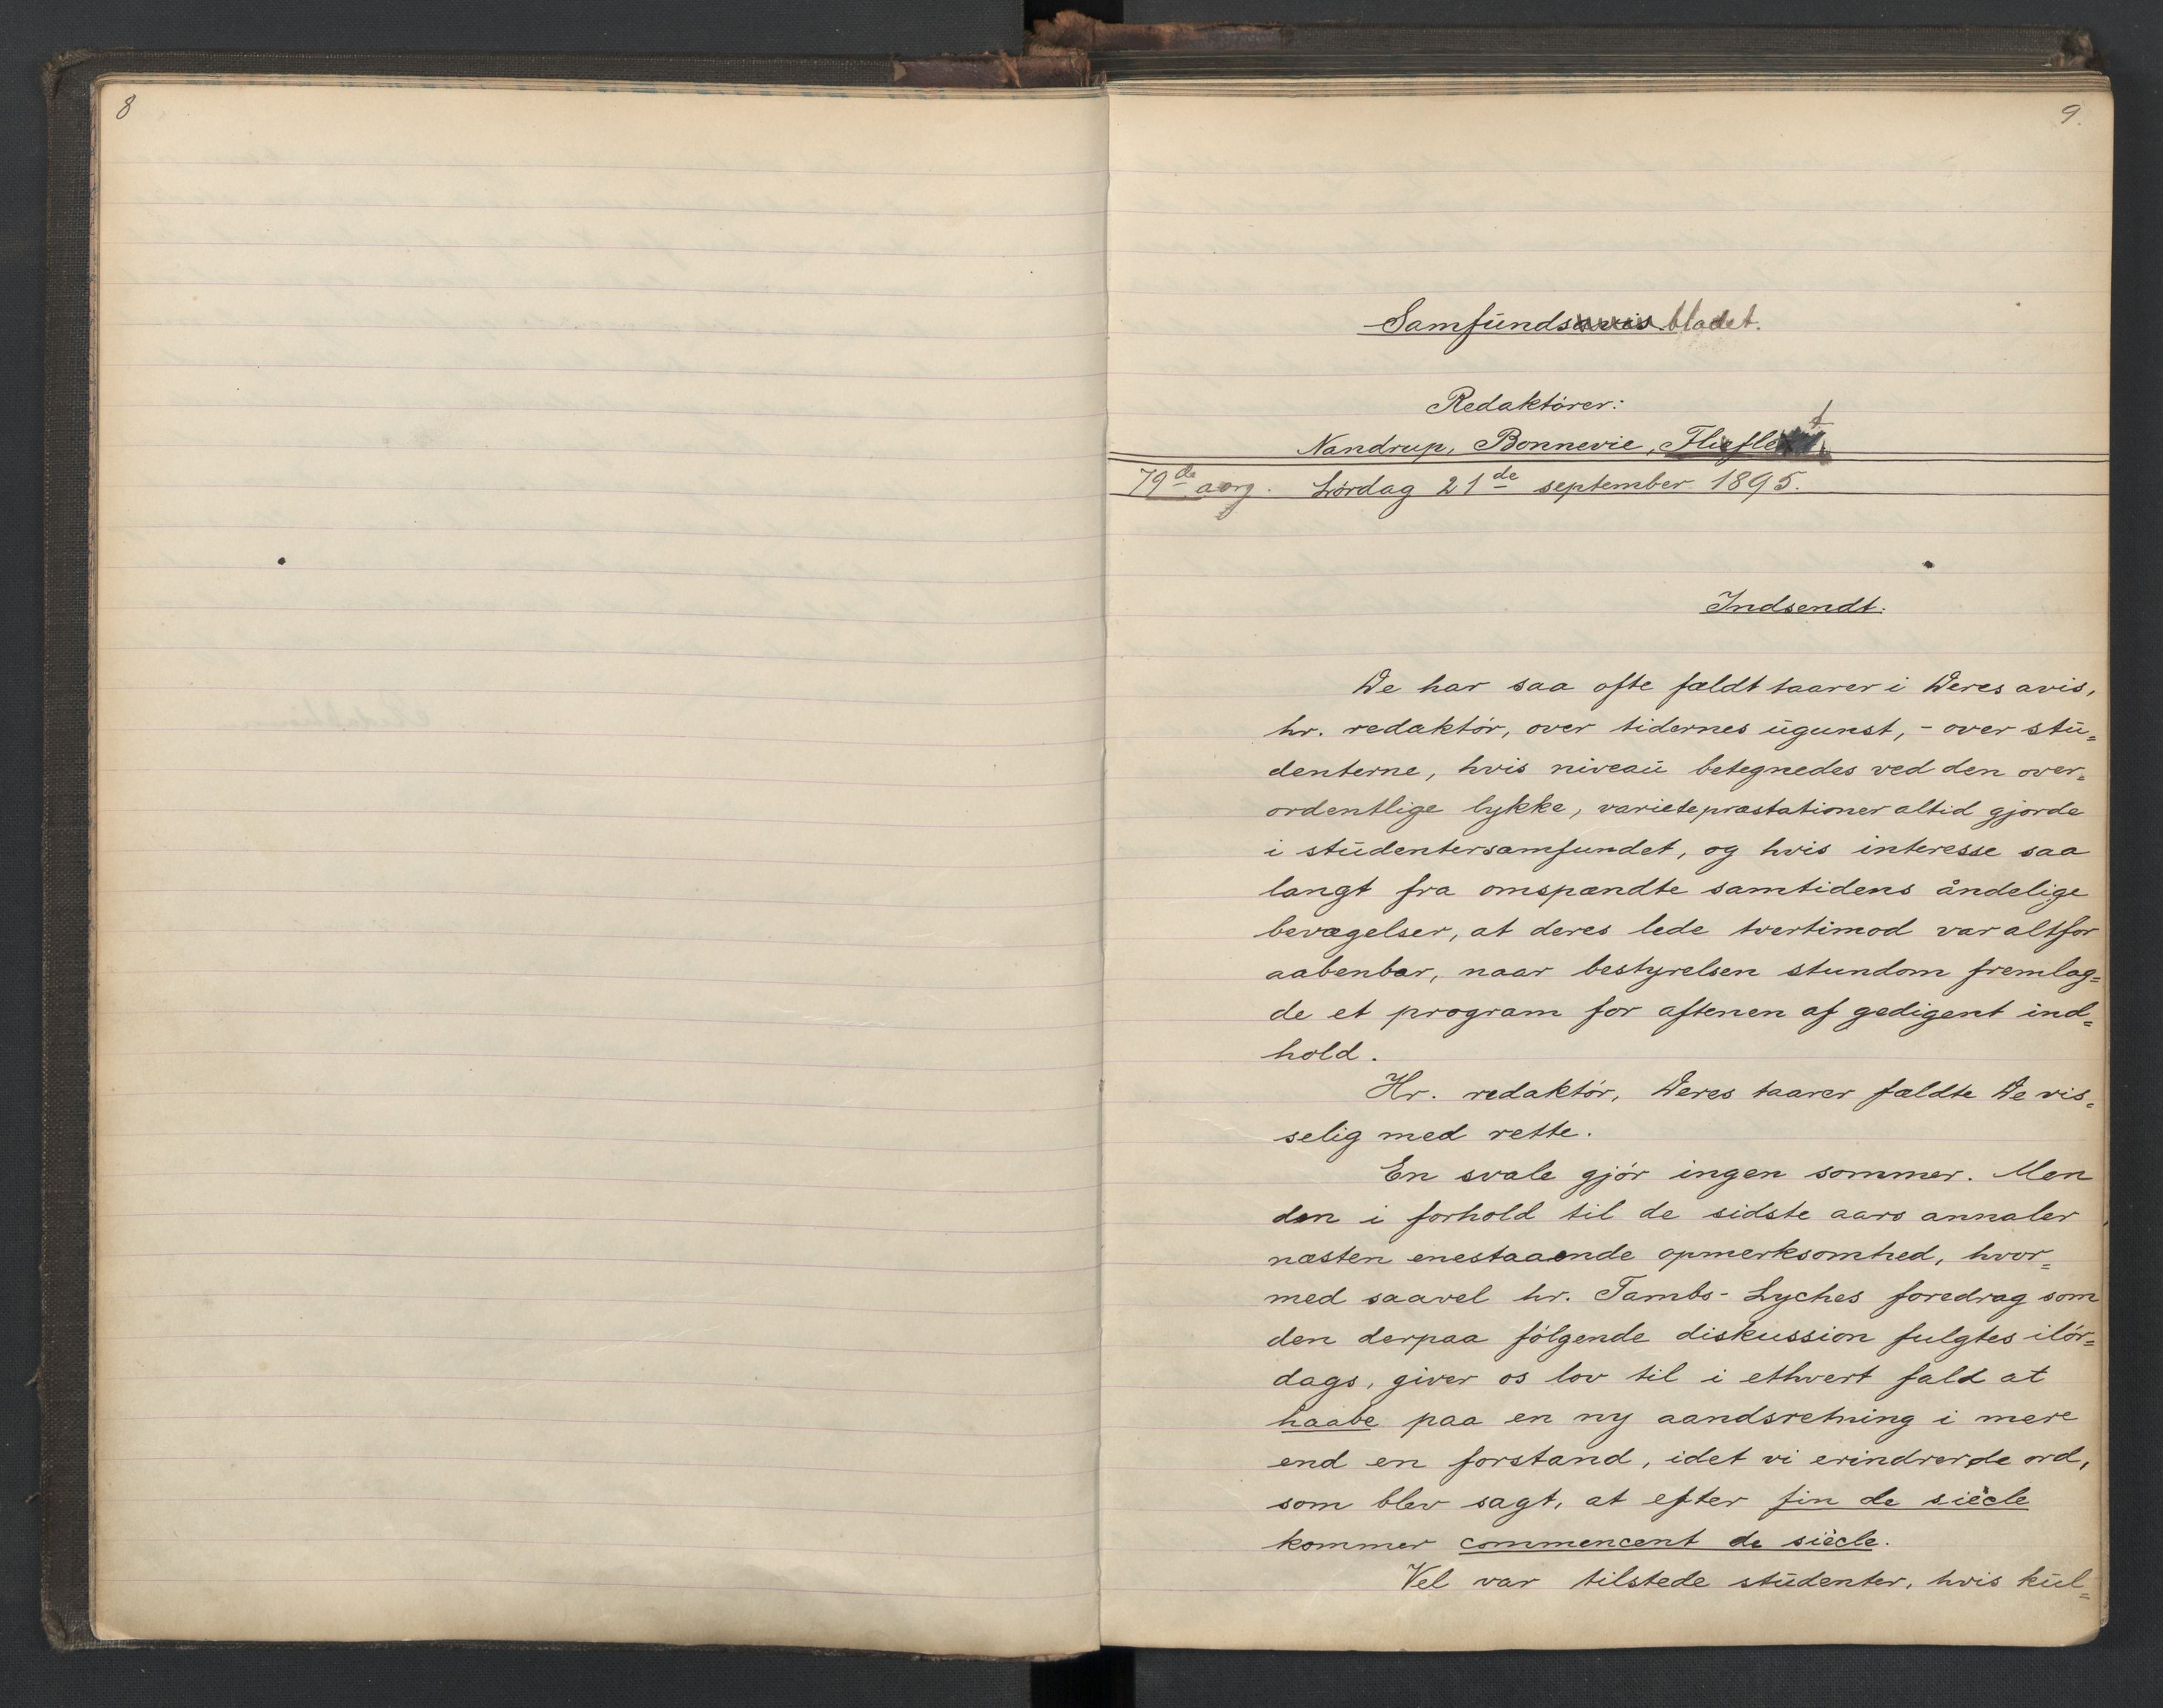 8
9.
Samfundsavis bladet.
Redaktører:
Nandrup, Bonnevie,
79de aarg. Lørdag 21de september 1895.
Indsendt.
De har saa ofte fældt taarer i Deres avis,
hr. redaktør, over tidernes ugunst, - over stu=
denterne, hvis niveau betegnedes ved den over=
ordentlige lykke, varietepræstationer altid gjorde
i studentersamfundet, og hvis interesse saa
langt fra omspændte samtidens åndelige
bevægelser, at deres lede tvertimod var altfor
aabenbar, naar bestyrelsen stundom fremlag=
de et program for aftenen af gedigent ind=
hold.
Hr. redaktør, Deres taarer fældte De vis=
selig med rette.
En svale gjør ingen sommer. Men
den i forhold til de sidste aars annaler
næsten enestaaende opmerksomhed, hvor=
med saavel hr. Tambs-Lyches foredrag som
den derpaa følgende diskussion fulgtes ilør=
dags, giver os lov til i ethvert fald at
haabe paa en ny aandsretning i mere
end en forstand, idet vi erindrer de ord,
som blev sagt, at efter fin de siècle
kommer commencent de siècle.
Vel var tilstede studenter, hvis kul=